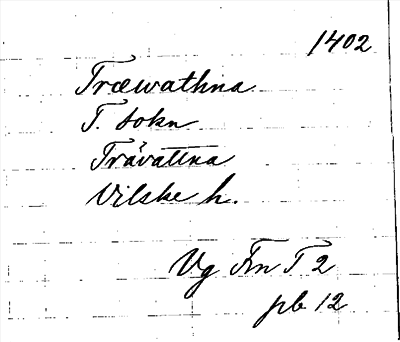 1402
Træwathna
T. sokn
Trävattna
Vilske h.
Vg Fn T 2
pb 12